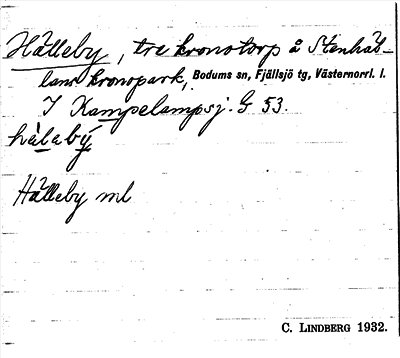 Hålleby, tre kronotorp å Stenhåb-
lans kronopark, Bodums sn, Fjällsjö tg, Västernorrl. l.
I Kampelampsj. G 53.
hå̀l<u>a</u>bý
Hålleby ml
C. LINDBERG 1932.